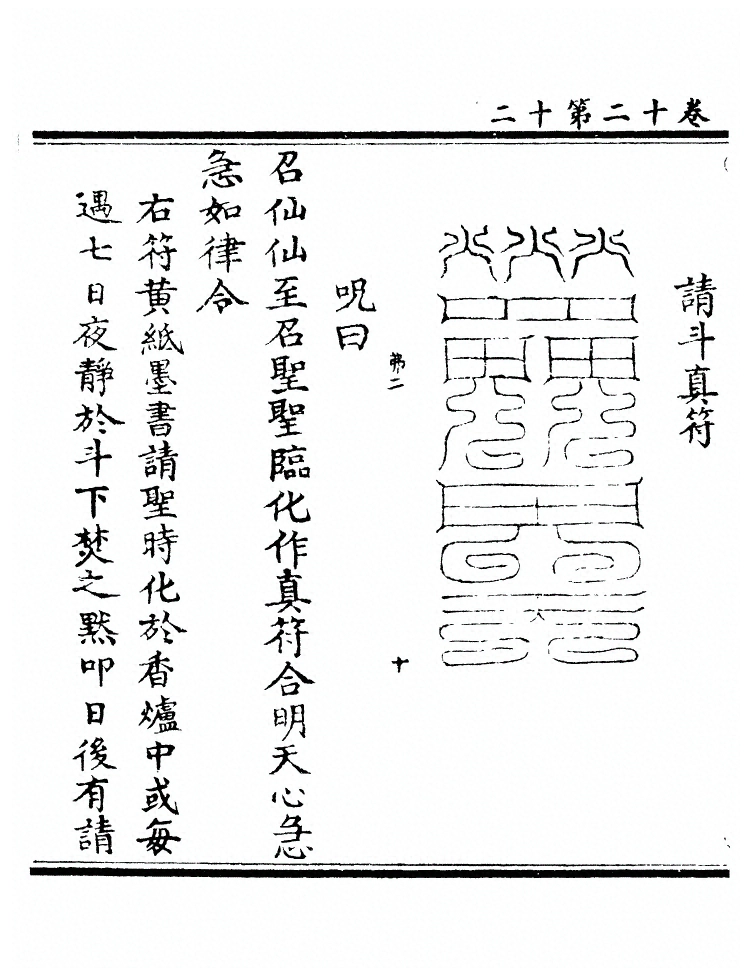 卷十二第十二
請斗真符
弟二 十
呪曰
召仙仙至召聖聖臨化作真符合明天心急
急如律令
右符黄紙墨書請聖時化於香爐中或每
遇七日夜靜於斗下焚之黙叩日後有請